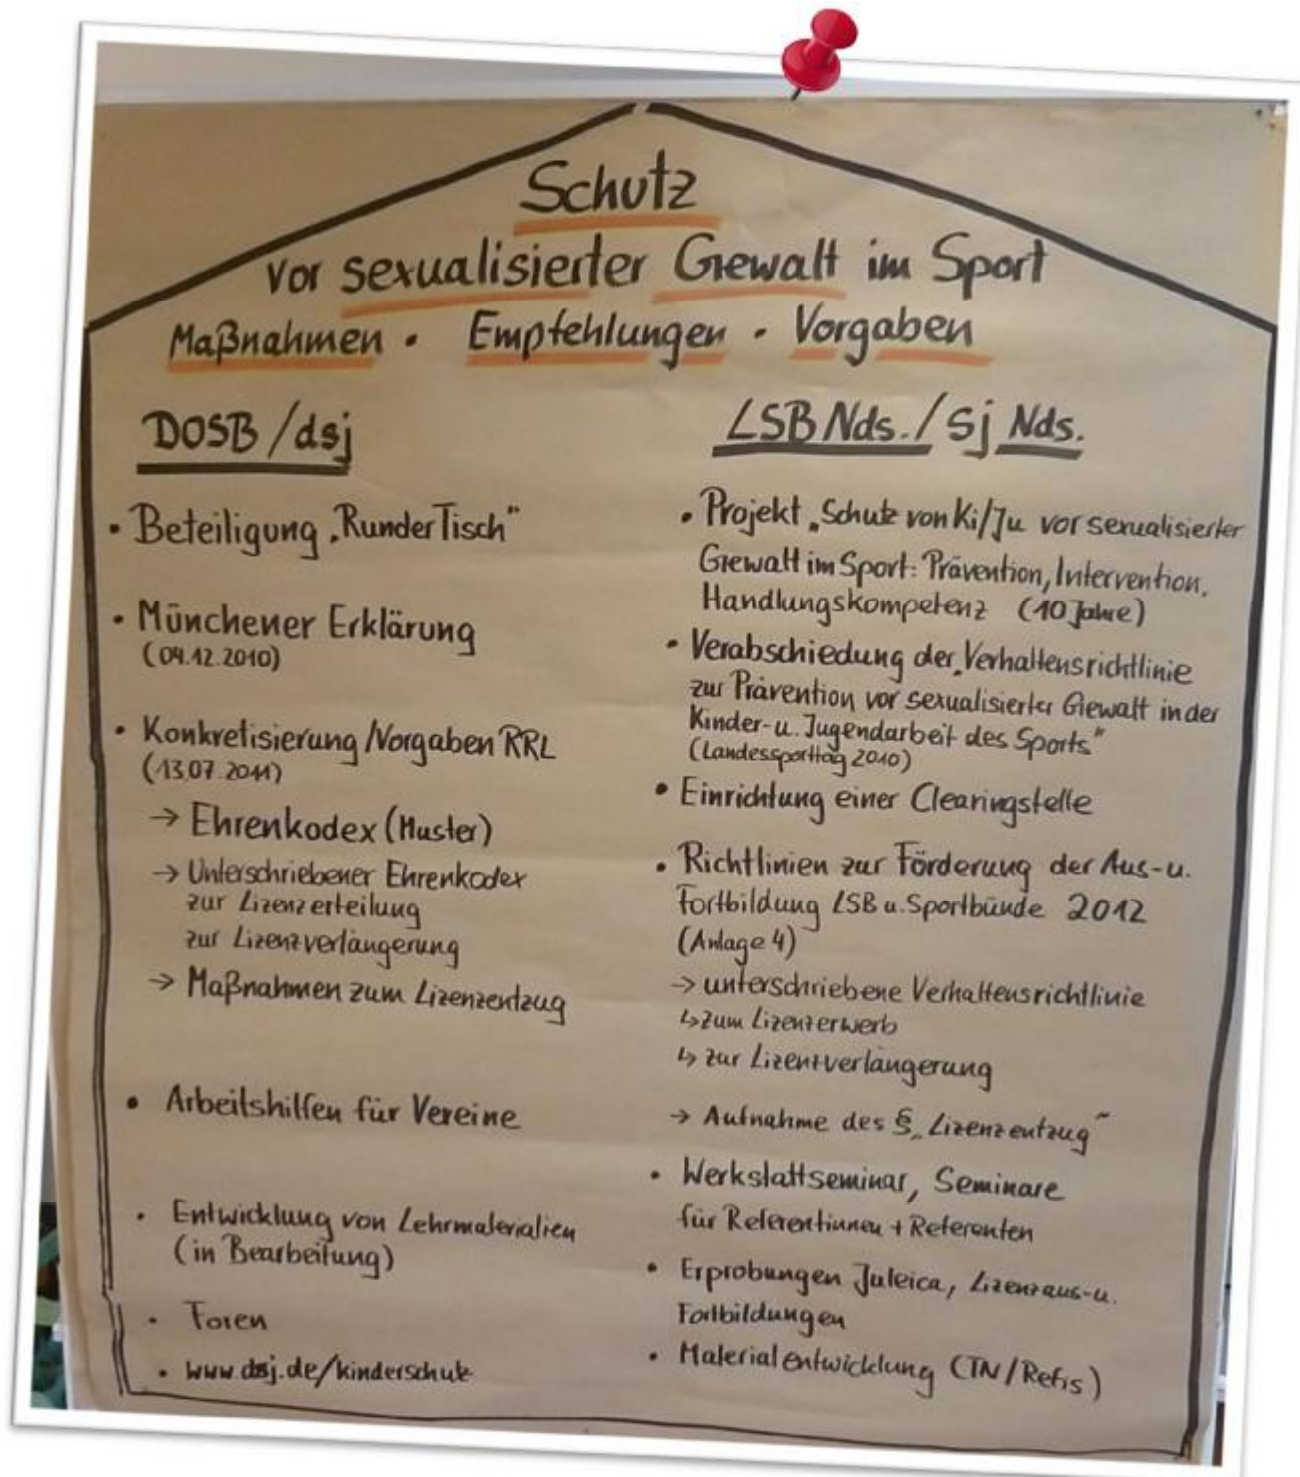 Schutz
vor sexualisierter Gewalt im Sport
Maßnahmen · Empfehlungen · Vorgaben
DOSB/dsj
• Beteiligung „Runder Tisch"
• Münchener Erklärung
(04.12.2010)
• Konkretisierung/Vorgaben RRL
(13.07.2011)
→ Ehrenkodex (Muster)
→ Unterschriebener Ehrenkodex
zur Lizenzerteilung
zur Lizenzverlängerung
→ Maßnahmen zum Lizenzentzug
• Arbeitshilfen für Vereine
• Entwicklung von Lehrmaterialien
(in Bearbeitung)
• Foren
• www.dsj.de/kinderschutz
LSB Nds./Sj Nds.
• Projekt „Schutz von Ki/Ju vor sexualisierter
Gewalt im Sport: Prävention, Intervention,
Handlungskompetenz (10 Jahre)
• Verabschiedung der „Verhaltensrichtlinie
zur Prävention vor sexualisierter Gewalt in der
Kinder- u. Jugendarbeit des Sports"
(Landessporttag 2010)
• Einrichtung einer Clearingstelle
• Richtlinien zur Förderung der Aus- u.
Fortbildung LSB u. Sportbünde 2012
(Anlage 4)
→ unterschriebene Verhaltensrichtlinie
↳ zum Lizenzerwerb
↳ zur Lizenzverlängerung
→ Aufnahme des § „Lizenzentzug"
• Werkstattseminar, Seminare
für Referentinnen + Referenten
• Erprobungen Juleica, Lizenzaus- u.
Fortbildungen
• Materialentwicklung (TN/Refis)